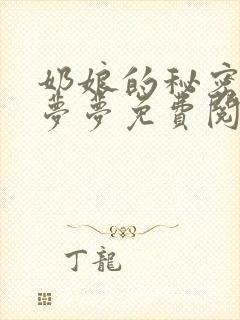 奶娘的秘密
夢夢免費閱
丁龍